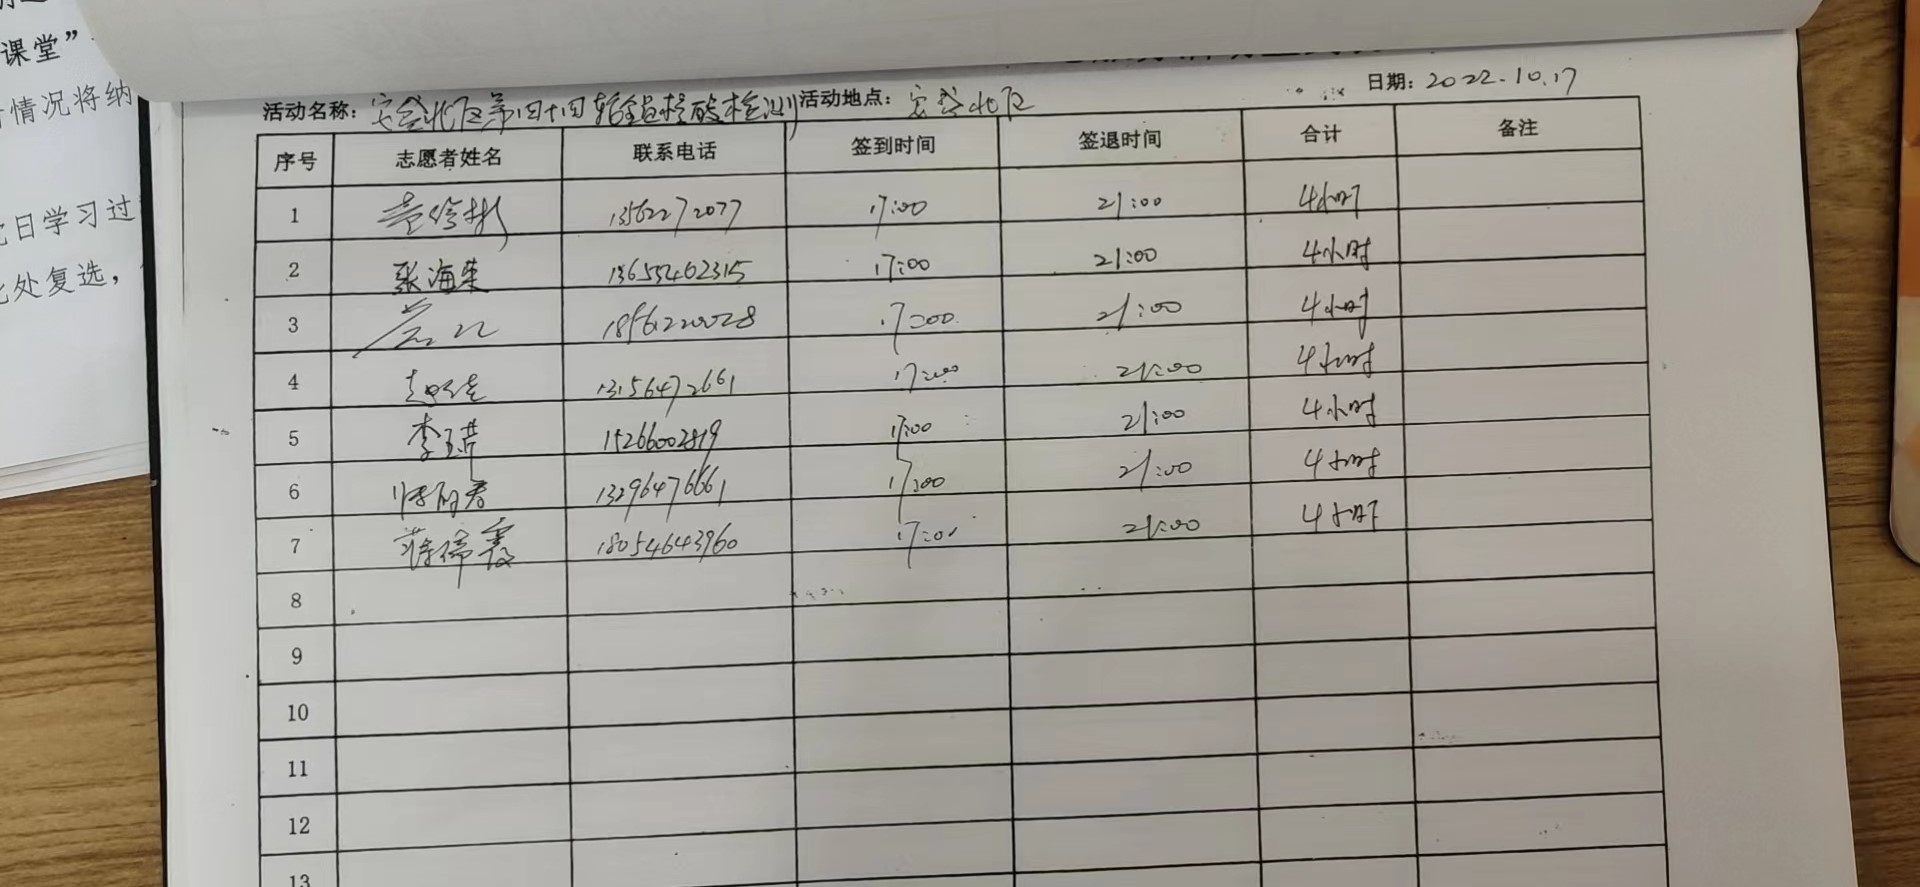 课堂”
情况将纳
日学习过
处复选，
活动名称：安盛北区第四十四轮全员核酸检测 活动地点：安盛北区 日期：2022.10.17
序号 志愿者姓名 联系电话 签到时间 签退时间 合计 备注
1 13562272077 17:00 21:00 4小时
2 张海荣 13655462315 17:00 21:00 4小时
3 18561220028 17:00 21:00 4小时
4 13156472661 17:00 21:00 4小时
5 15266002819 17:00 21:00 4小时
6 13296476661 17:00 21:00 4小时
7 18054643960 17:00 21:00 4小时
8
9
10
11
12
13